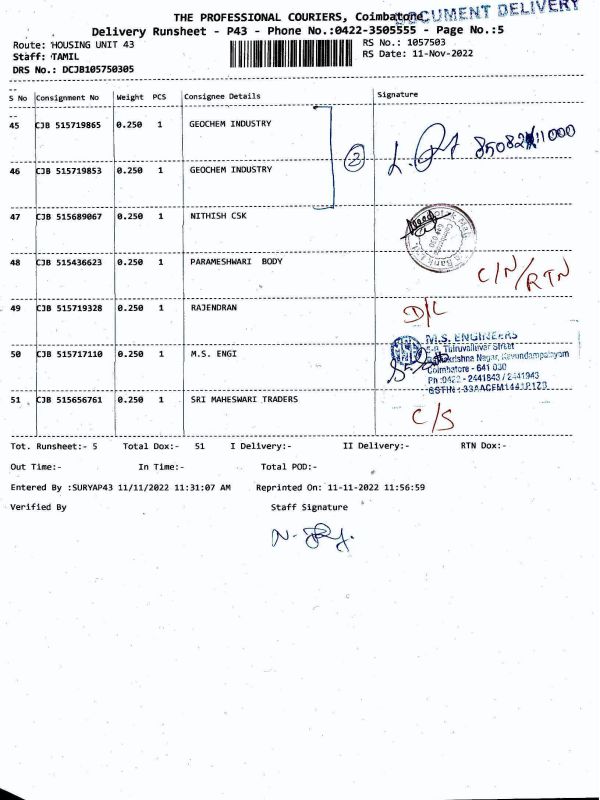 DOCUMENT DELIVERY
THE PROFESSIONAL COURIERS, Coimbatore
Delivery Runsheet - P43 - Phone No.:0422-3505555 - Page No.:5
Route: HOUSING UNIT 43 RS No.: 1057503
Staff: TAMIL RS Date: 11-Nov-2022
DRS No.: DCJB105750305
S No Consignment No Weight PCS Consignee Details Signature
45 CJB 515719865 0.250 1 GEOCHEM INDUSTRY
② 
46 CJB 515719853 0.250 1 GEOCHEM INDUSTRY
47 CJB 515689067 0.250 1 NITHISH CSK
48 CJB 515436623 0.250 1 PARAMESHWARI BODY C/N/RTN
49 CJB 515719328 0.250 1 RAJENDRAN D/L
M.S. ENGINEERS
Street
Nagar, Kavundampalayam
Coimbatore - 641 030
Ph :0422 - 2441843 / 2441943
50 CJB 515717110 0.250 1 M.S. ENGI
51 CJB 515656761 0.250 1 SRI MAHESWARI TRADERS C/S
Tot. Runsheet:- 5 Total Dox:- 51 I Delivery:- II Delivery:- RTN Dox:-
Out Time:- In Time:- Total POD:-
Entered By :SURYAP43 11/11/2022 11:31:07 AM Reprinted On: 11-11-2022 11:56:59
Verified By Staff Signature